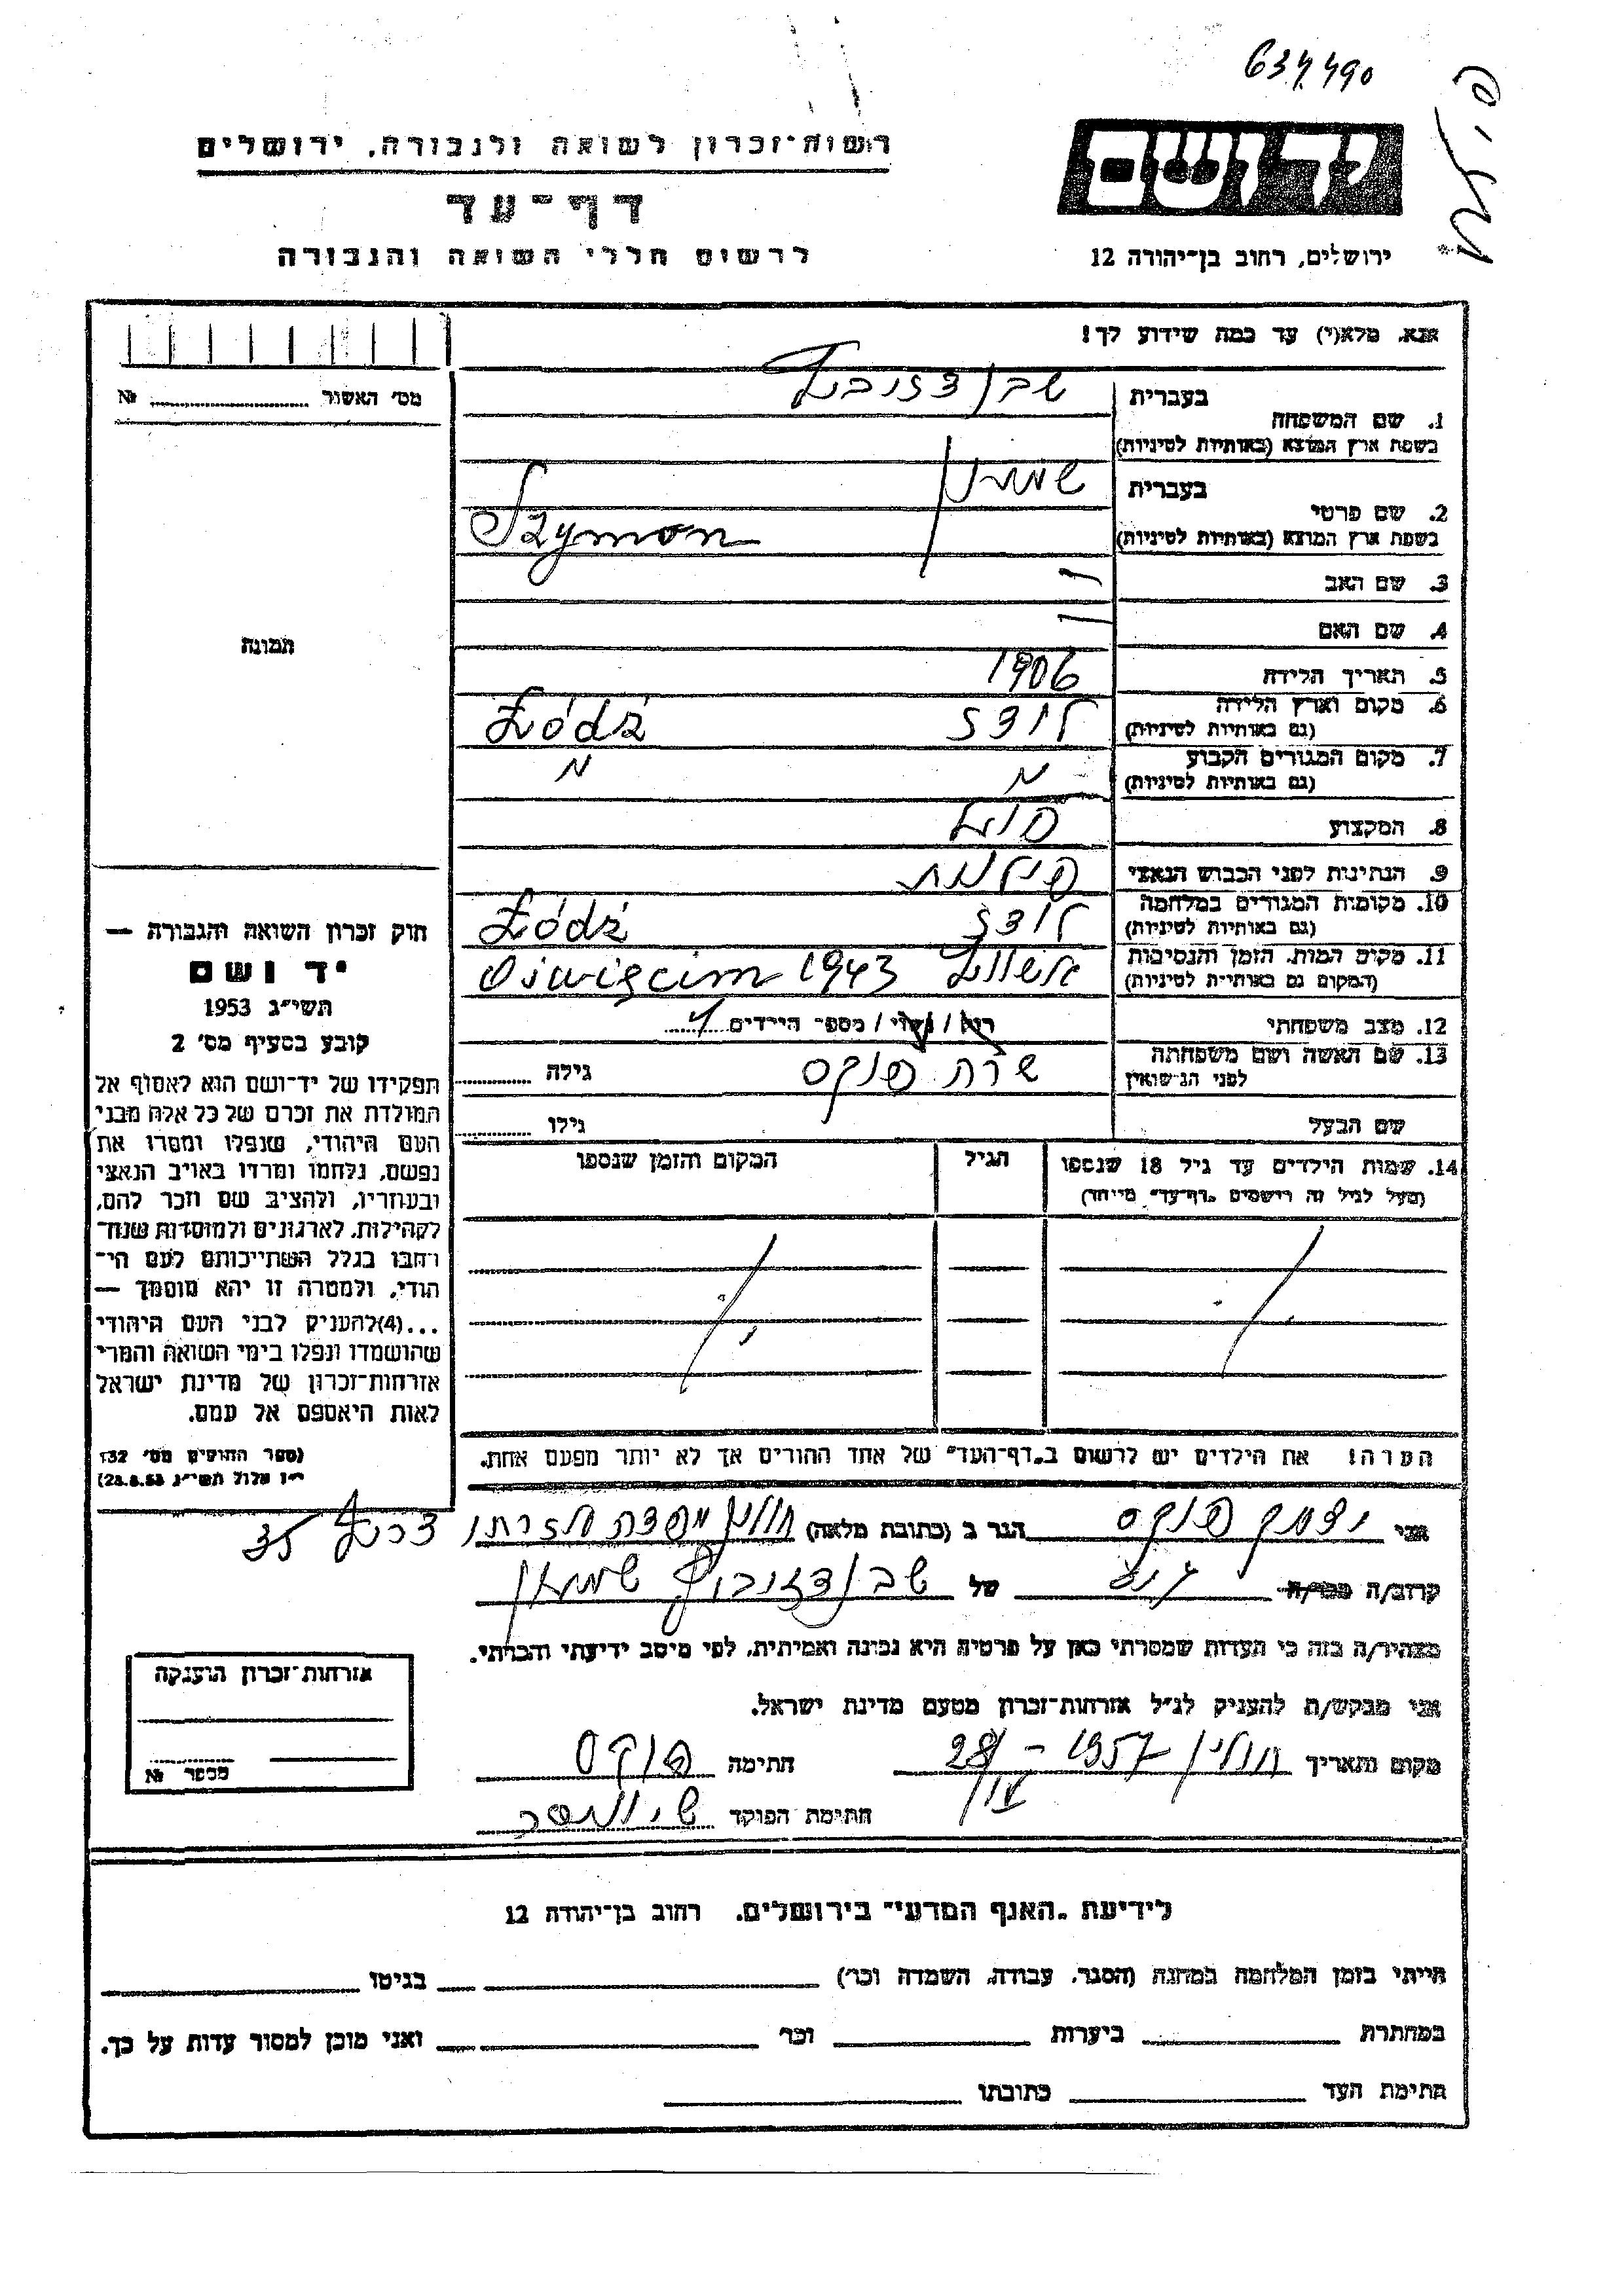 637490
פולין
רשות-זכרון לשואה ולגבורה, ירושלים
יד ושם
דף-עד
לרשום חללי השואה והגבורה
ירושלים, רחוב בן-יהודה 12
אנא, מלא(י) עד כמה שידוע לך!
מס' האשור № 
1. שם המשפחה
בעברית
בשפת ארץ המוצא (באותיות לטיניות)
2. שם פרטי
בעברית שמעון
בשפת ארץ המוצא (באותיות לטיניות) Szymon
3. שם האב —
4. שם האם —
תמונה
5. תאריך הלידה 1906
6. מקום וארץ הלידה לודז Łódź
(גם באותיות לטיניות)
7. מקום המגורים הקבוע
(גם באותיות לטיניות)
8. המקצוע
9. הנתינות לפני הכבוש הנאצי פולנית
10. מקומות המגורים במלחמה לודז Łódź
(גם באותיות לטיניות)
11. מקום המות, הזמן והנסיבות 1943 Oświęcim
(המקום גם באותיות לטיניות)
12. מצב משפחתי רוק / נשוי / מספר הילדים
13. שם האשה ושם משפחתה שרה פוקס גילה
לפני הנישואין
שם הבעל גילו
14. שמות הילדים עד גיל 18 שנספו הגיל המקום והזמן שנספו
(מעל לגיל זה רישמים "דף-עד" מיוחד)
הערה! את הילדים יש לרשום ב"דף-העד" של אחד ההורים אך לא יותר מפעם אחת.
חוק זכרון השואה והגבורה —
יד ושם
תשי"ג 1953
קובע בסעיף מס' 2
תפקידו של יד-ושם הוא לאסוף אל
המולדת את זכרם של כל אלה מבני
העם היהודי, שנפלו ומסרו את
נפשם, נלחמו ומרדו באויב הנאצי
ובעוזריו, ולהציב שם וזכר להם,
לקהילות, לארגונים ולמוסדות שנח-
רחבו בגלל השתייכותם לעם הי-
הודי, ולמטרה זו יהא מוסמך —
...(4)להעניק לבני העם היהודי
שהושמדו ונפלו בימי השואה והמרי
אזרחות-זכרון של מדינת ישראל
לאות היאספם אל עמם.
(ספר החוקים מס' 132
י"ז אלול תשי"ג 28.8.53)
אני יצחק פוקס הגר ב (כתובת מלאה) חולון 35
קרוב/ה מכר/ה גיס של שמעון
מצהיר/ה בזה כי העדות שמסרתי כאן על פרטיה היא נכונה ואמיתית, לפי מיטב ידיעתי והכרתי.
אני מבקש/ת להעניק לנ"ל אזרחות-זכרון מטעם מדינת ישראל.
מקום ותאריך חולון 28/IV - 1957 חתימה פוקס
חתימת הפוקד
אזרחות-זכרון הוענקה
מספר №
לידיעת "האגף המדעי" בירושלים, רחוב בן-יהודה 12
הייתי בזמן המלחמה במחנה (הסגר, עבודה, השמדה וכו') בגיטו
במחתרת ביערות וכו' ואני מוכן למסור עדות על כך.
חתימת העד כתובתו